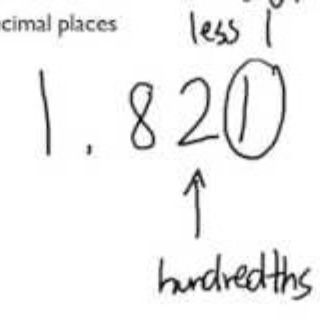 cimal places
less 1
1.821
hundredths